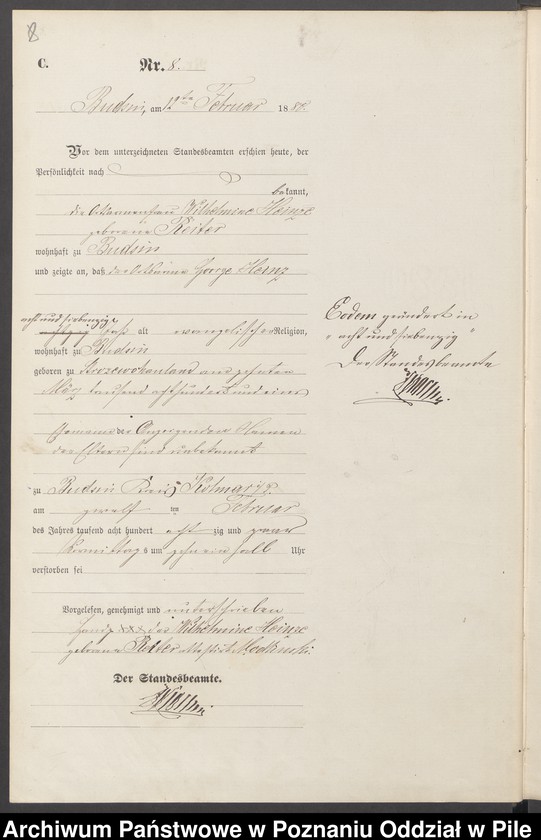 8
C.
Nr. 8.
Budsin, am 12ten Februar 1882.
Vor dem unterzeichneten Standesbeamten erschien heute, der
Persönlichkeit nach
bekannt,
die Wilhelmine Heinze
geborene Reiter
wohnhaft zu Budsin
und zeigte an, daß der Heinz
acht und siebenzig
alt evangelischer Religion,
wohnhaft zu Budsin
geboren zu am zehnten
März tausend achthundert und
der Anzeigenden Namen
der Eltern sind unbekannt
zu Budsin Kreis Kolmar i/P.
am zwölf ten Februar
des Jahres tausend acht hundert acht zig und zwei
Vormittags um zehn ein halb Uhr
verstorben sei
Vorgelesen, genehmigt und unterschrieben
Handz. xxx der Wilhelmine Heinze
geborene Reiter
Der Standesbeamte.
Eodem geändert in
„acht und siebenzig"
Der Standesbeamte
Archiwum Państwowe w Poznaniu Oddział w Pile